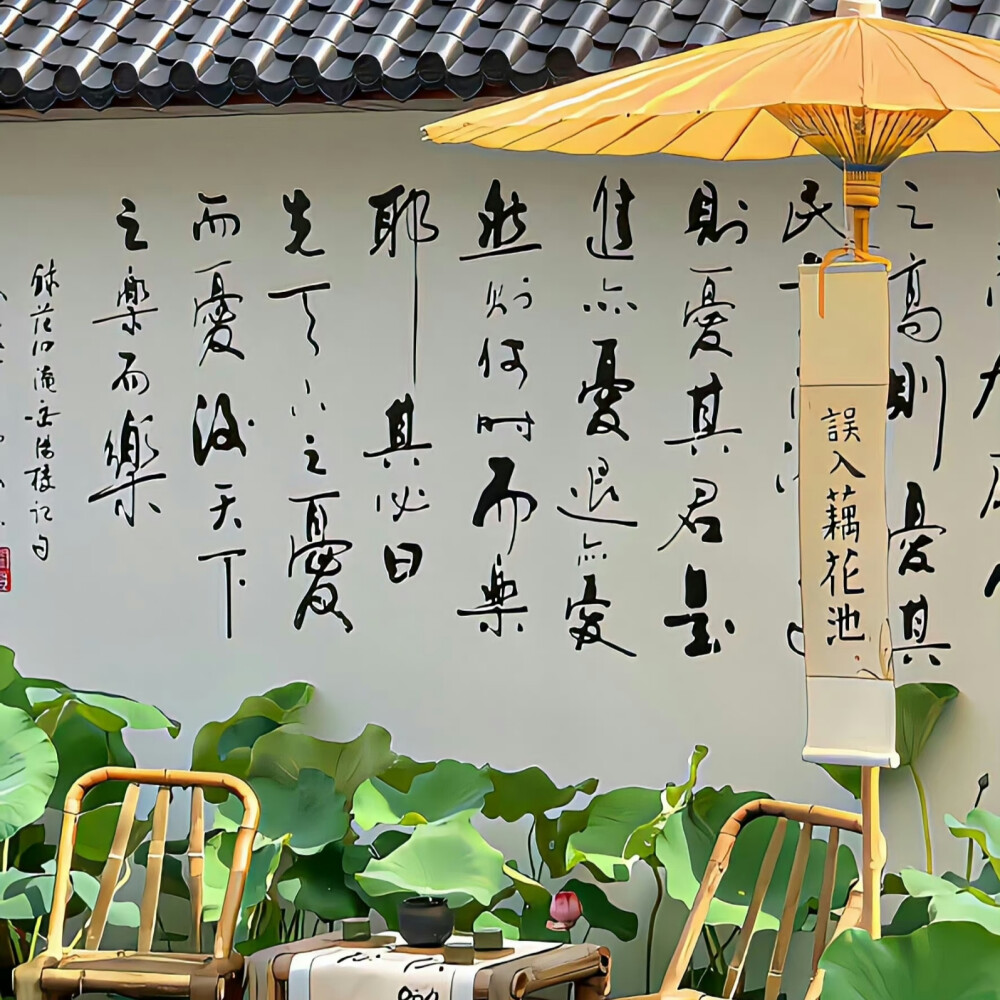 之高則憂其
民
則憂其君是
進亦憂退亦憂
然則何時而樂
耶其必曰
先天下之憂
而憂後天下
之樂而樂
錄范仲淹岳陽樓記句
誤入藕花池